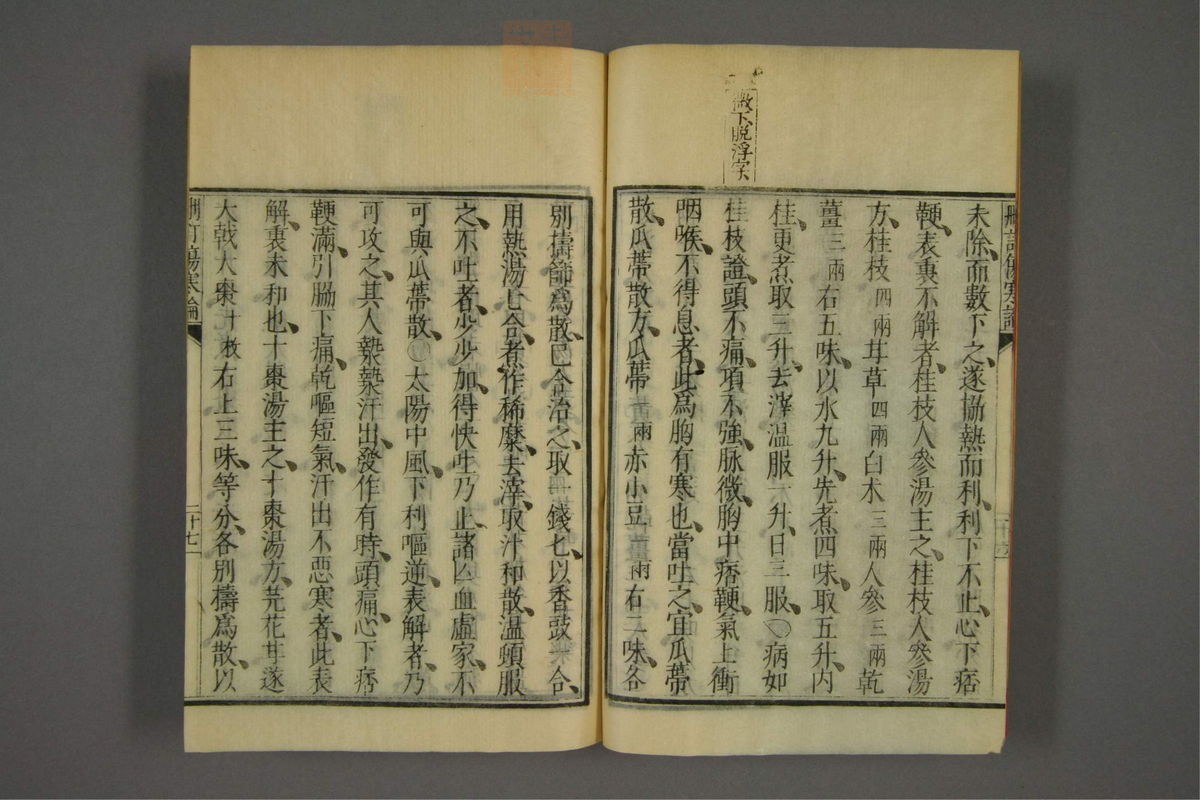 微下脫浮字
未除而數下之遂協熱而利利下不止心下痞
鞕表裏不解者桂枝人參湯主之桂枝人參湯
方桂枝四兩甘草四兩白朮三兩人參三兩乾
薑三兩右五味以水九升先煮四味取五升內
桂更煮取三升去滓溫服一升日三服○病如
桂枝證頭不痛項不強脉微胸中痞鞕氣上衝
咽喉不得息者此爲胸有寒也當吐之宜瓜蒂
散瓜蒂散方瓜蒂 兩赤小豆一兩右二味各
刪訂傷寒論
二十七
別擣篩爲散已合治之取一錢匕以香豉一合
用熱湯七合煮作稀糜去滓取汁和散溫頓服
之不吐者少少加得快吐乃止諸亡血虛家不
可與瓜蒂散○太陽中風下利嘔逆表解者乃
可攻之其人漐漐汗出發作有時頭痛心下痞
鞕滿引脇下痛乾嘔短氣汗出不惡寒者此表
解裏未和也十棗湯主之十棗湯方芫花甘遂
大戟大棗十枚右上三味等分各別擣爲散以
刪訂傷寒論